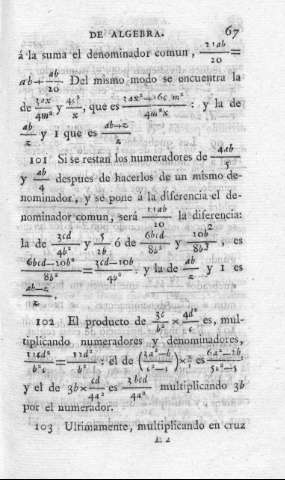 DE ALGEBRA. 67
á la suma el denominador comun, 21ab/20 =
ab + ab/20. Del mismo modo se encuentra la
de 3ax/4m² y , que es : y la de
ab/z y 1 que es
101 Si se restan los numeradores de 4ab/5
y ab/4 despues de hacerlos de un mismo de-
nominador, y se pone á la diferencia el de-
nominador comun, será 11ab/20 la diferencia:
la de 3cd/4b² y 5/2b ó de 6bcd/8b³ y 20b²/8b³, es
6bcd—20b²/8b³ = 3cd—10b/4b². y la de ab/z y 1 es
ab—z/z.
102 El producto de 3c/b² × 4d²/c es, mul-
tiplicando numeradores y denominadores,
12cd²/b²c = 12d²/b² : el de es
y el de 3b × cd/4a² es 3bcd/4a² multiplicando 3b
por el numerador.
103 Ultimamente, multiplicando en cruz
E 2